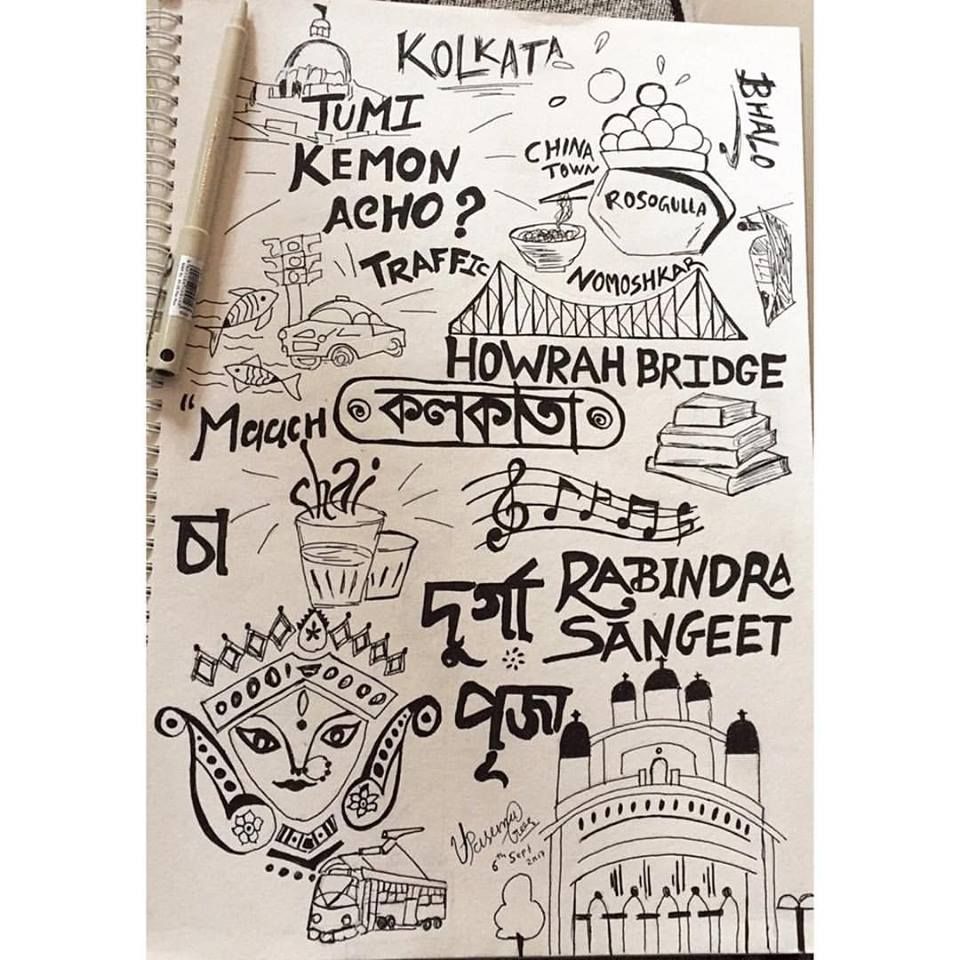 KOLKATA
BHALO
TUMI
KEMON
ACHO?
CHINA
TOWN
ROSOGULLA
TRAFFIC
NOMOSHKAR
HOWRAH BRIDGE
"Maach
কলকাতা
chai
চা
RABINDRA
SANGEET
দূর্গা
পূজা
6th Sept
2017